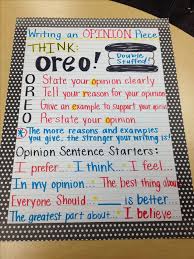 Writing an OPINION Piece
THINK:
oreo!
Double Stuffed!
O State your opinion clearly
R Tell your reason for your opinion
E Give an example to support your opinion
O Re-state your opinion
The more reasons and examples you
give, the stronger your writing is!
Opinion Sentence Starters:
I prefer... I think... I feel...
In my opinion... The best thing about
Everyone Should... ___ is better
The greatest part about... I believe